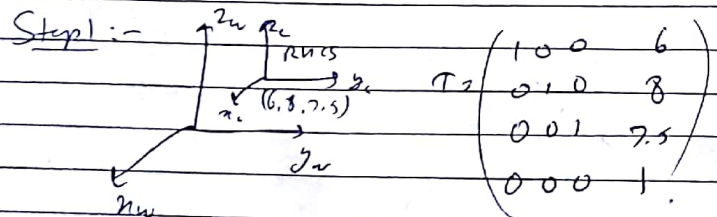 Step1 :-
Zw Zc
RHCS
yc
xc (6, 8, 7.5)
yw
xw
T = ( 1 0 0 6
0 1 0 8
0 0 1 7.5
0 0 0 1 )